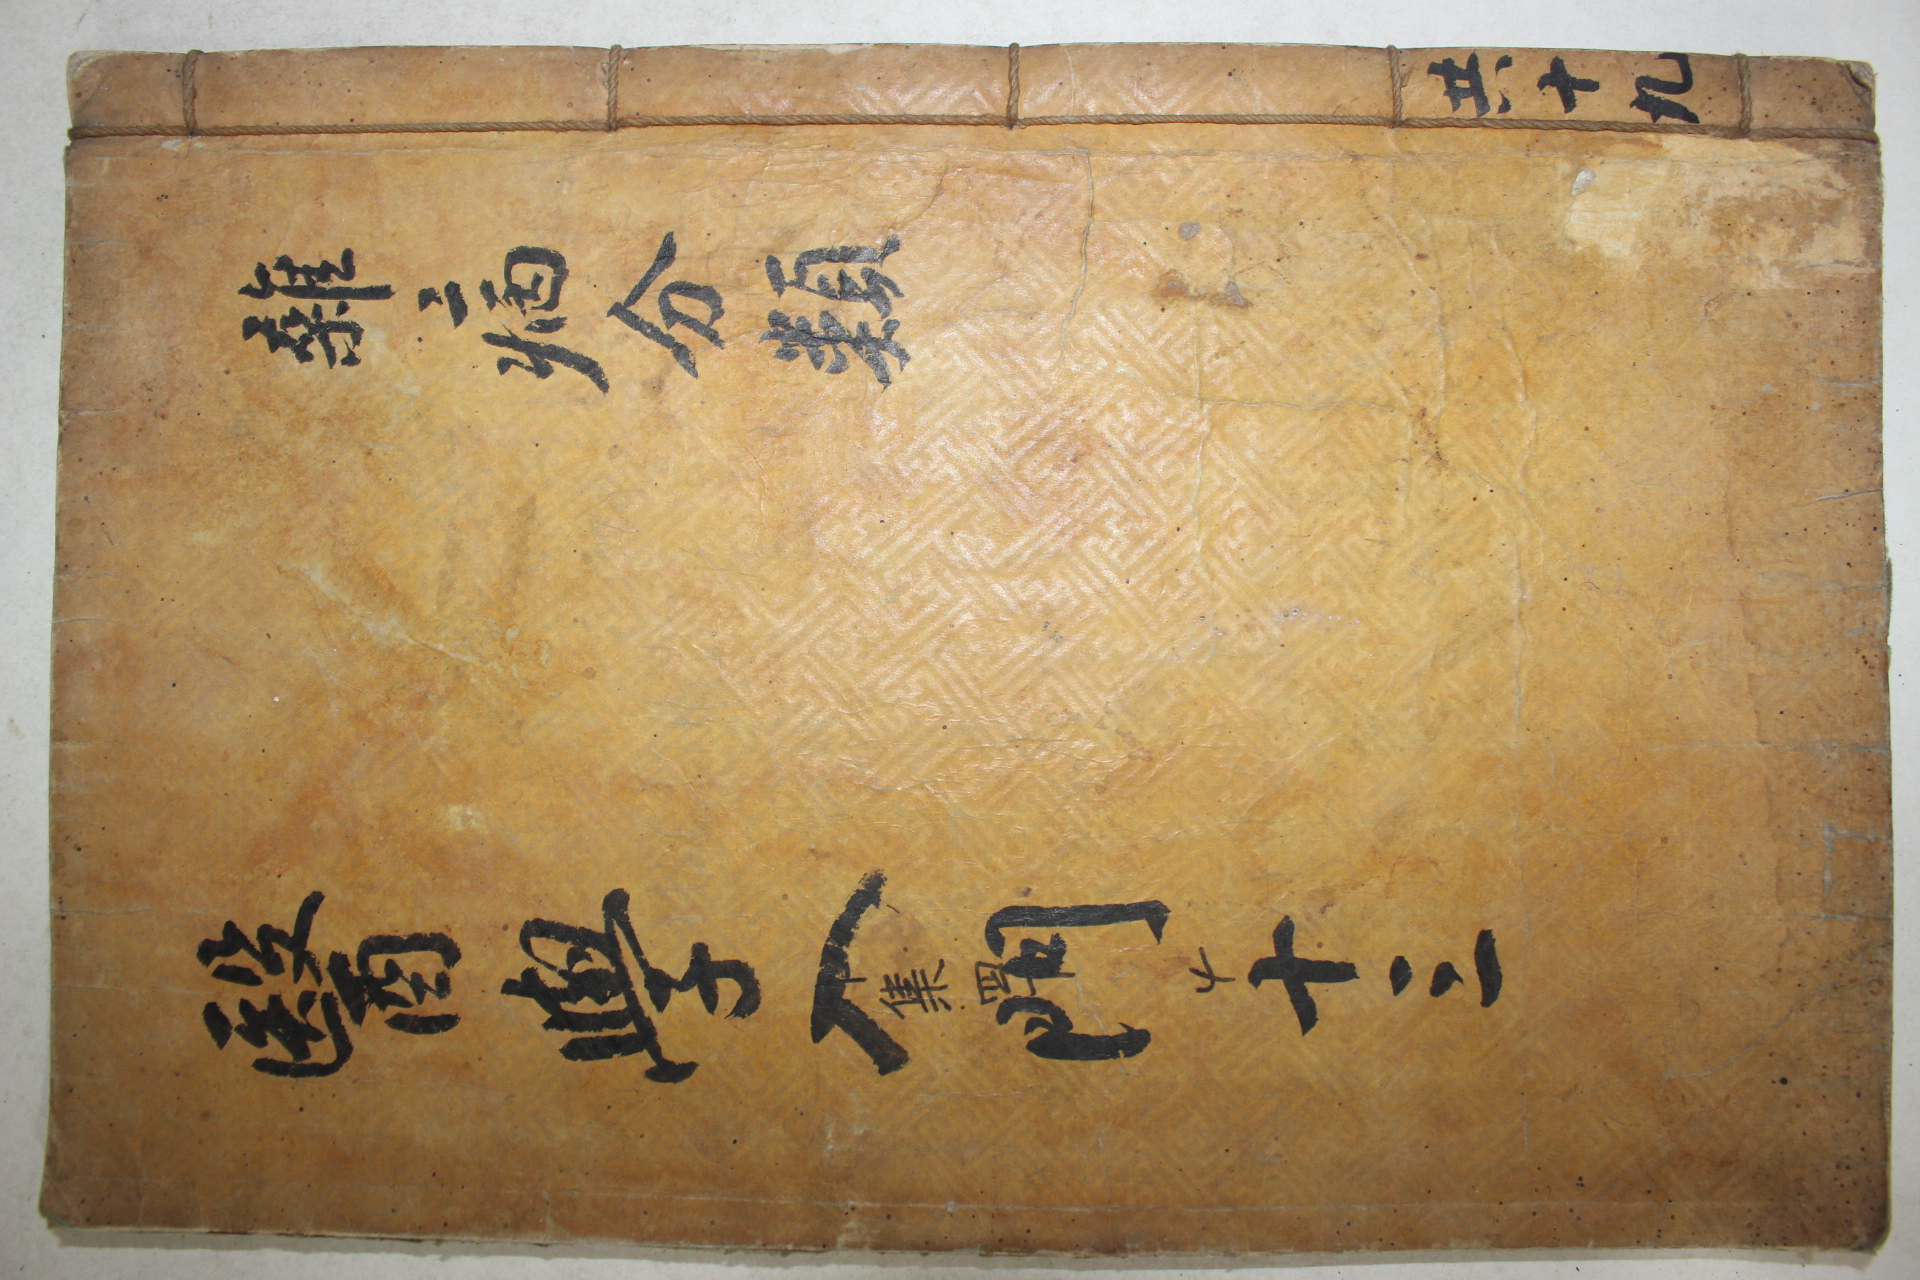 雜二病分類
醫學入門 十三
集四
共十九